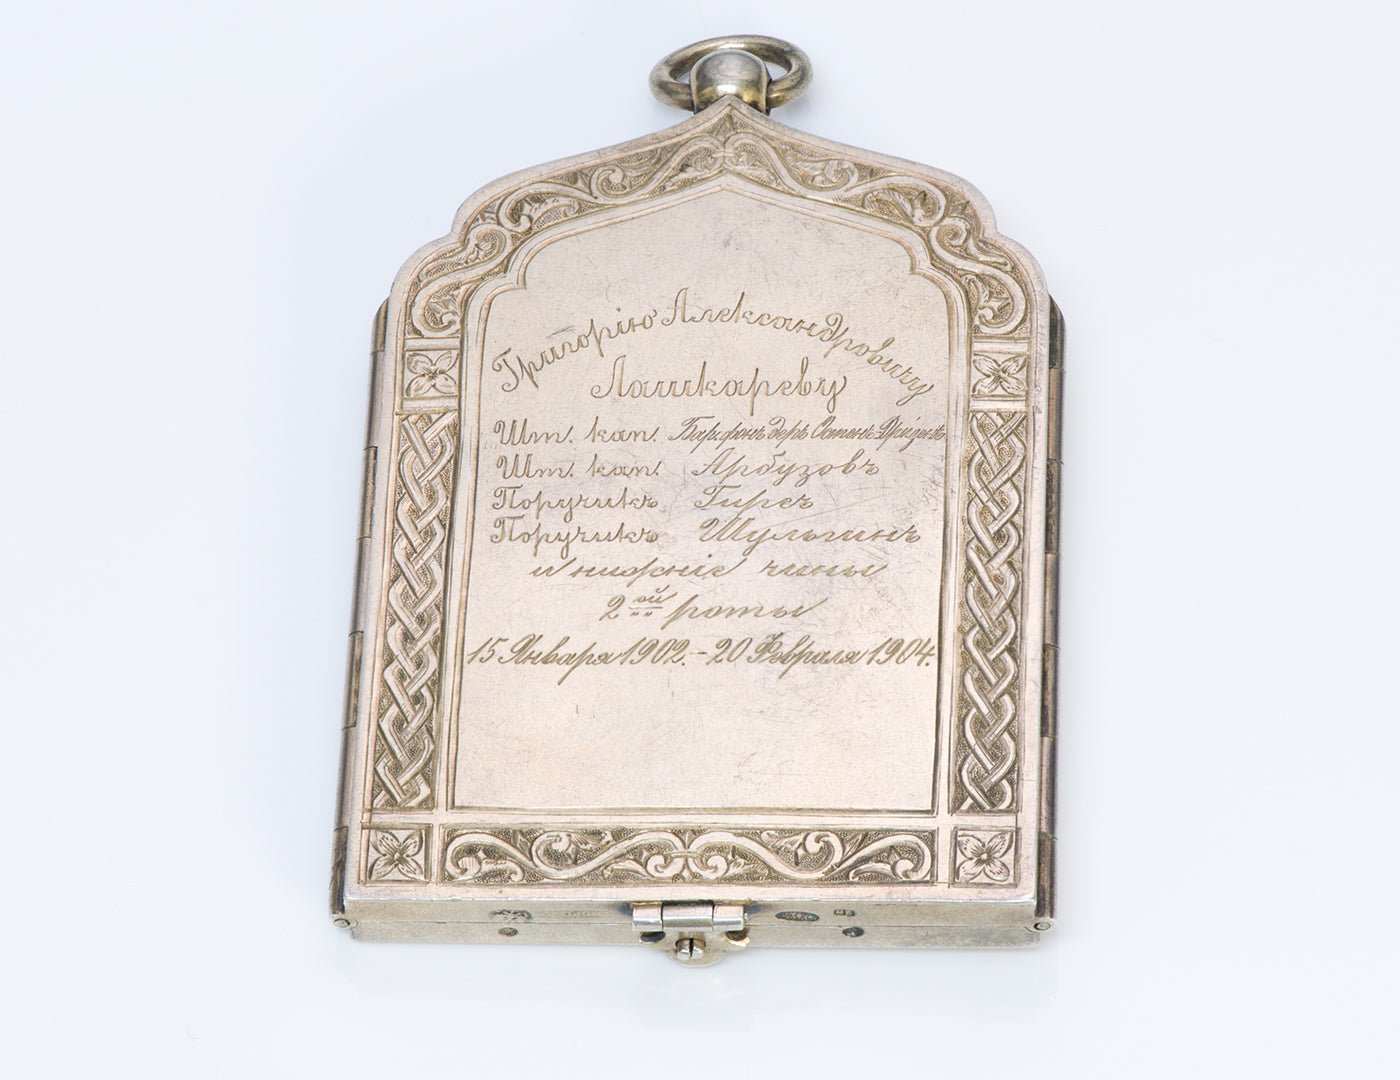 Григорію Александровичу
Лашкареву
Шт. кап. Баронъ деръ Остенъ Дризенъ
Шт. кап. Арбузовъ
Поручикъ Гирсъ
Поручикъ Шульгинъ
и нижніе чины
2ой роты
15 Января 1902. – 20 Февраля 1904.